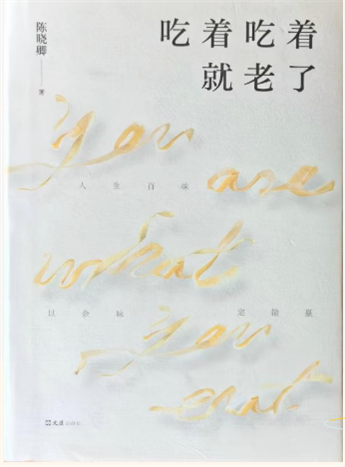 吃着吃着
就老了
陈晓卿
著
You
are
人生百味
what
以余味
定输赢
You
eat
文汇出版社